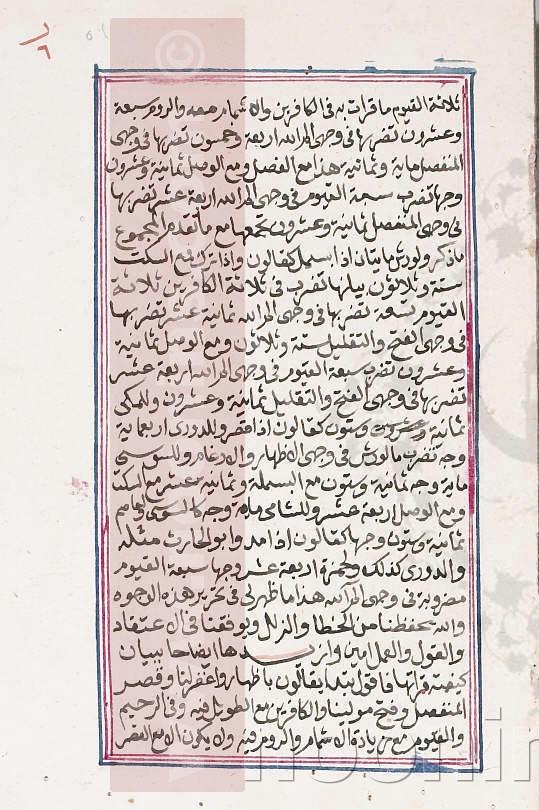 ثلاثة القيوم ما قرات به في الكافرين والاشمام معه والروم سبعة
وعشرون تضربها في وجهى الم الله اربعة وخمسون تضربها في وجهى
المنفصل ماية وثمانية هذا مع الفصل ومع الوصل ثمانية وعشرون
وجها تضرب سبعة القيوم في وجهى الم الله اربعة عشر تضربها
في وجهى المنفصل ثمانية وعشرون تجمعها مع ما تقدم المجموع
ما ذكر ولورش مايتان اذا بسمل كقالون واذا ترك فمع السكت
ستة وثلاثون بيانها تضرب في ثلاثة الكافرين ثلاثة
القيوم تسعة تضربها في وجهى الم الله ثمانية عشر تضربها
في وجهى الفتح والتقليل ستة وثلاثون ومع الوصل ثمانية
وعشرون تضرب سبعة القيوم في وجهى الم الله اربعة عشر
تضربها في وجهى الفتح والتقليل ثمانية وعشرون وللمكى
ثمانية وستون كقالون اذا قصر وللدورى اربعماية
وجه تضرب ما لورش في وجهى الاظهار والادغام وللسوسى
ماية وجه ثمانية وستون مع البسملة وثمانية عشر مع السكت
ومع الوصل اربعة عشر وللشامى ماية وجه كالسوسى ولعاصم
ثمانية وستون وجها كقالون اذا مد وابو الحارث مثله
والدورى كذلك ولحمزة اربعة عشر وجها سبعة القيوم
مضروبة في وجهى الم الله هذا ما ظهر لى في تحرير هذه الاوجه
والله يحفظنا من الخطا والزلل ويوفقنا في الاعتقاد
والقول والعمل امين وازيدها ايضاحا ببيان
كيفية قراتها فاقول تبدا بقالون باظهار واغفر لنا وقصر
المنفصل وفتح مولينا والكافرين مع الطويل فيه وفي الرحيم
والقيوم مع زيادة الاشمام والروم فيه ولا يكون الا مع القصر